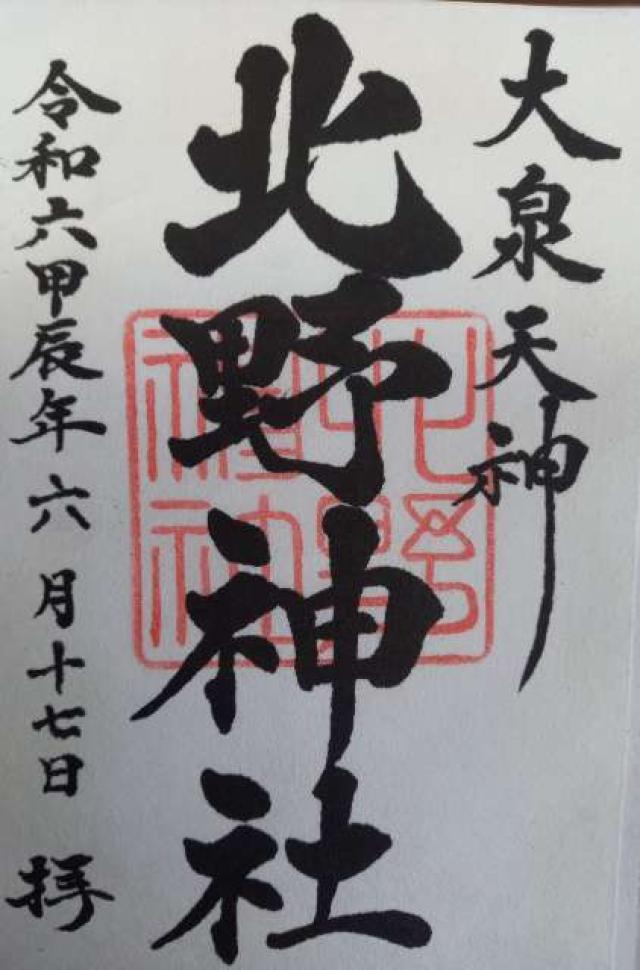 大泉天神
北野神社
北野神社
令和六甲辰年六月十七日 拝